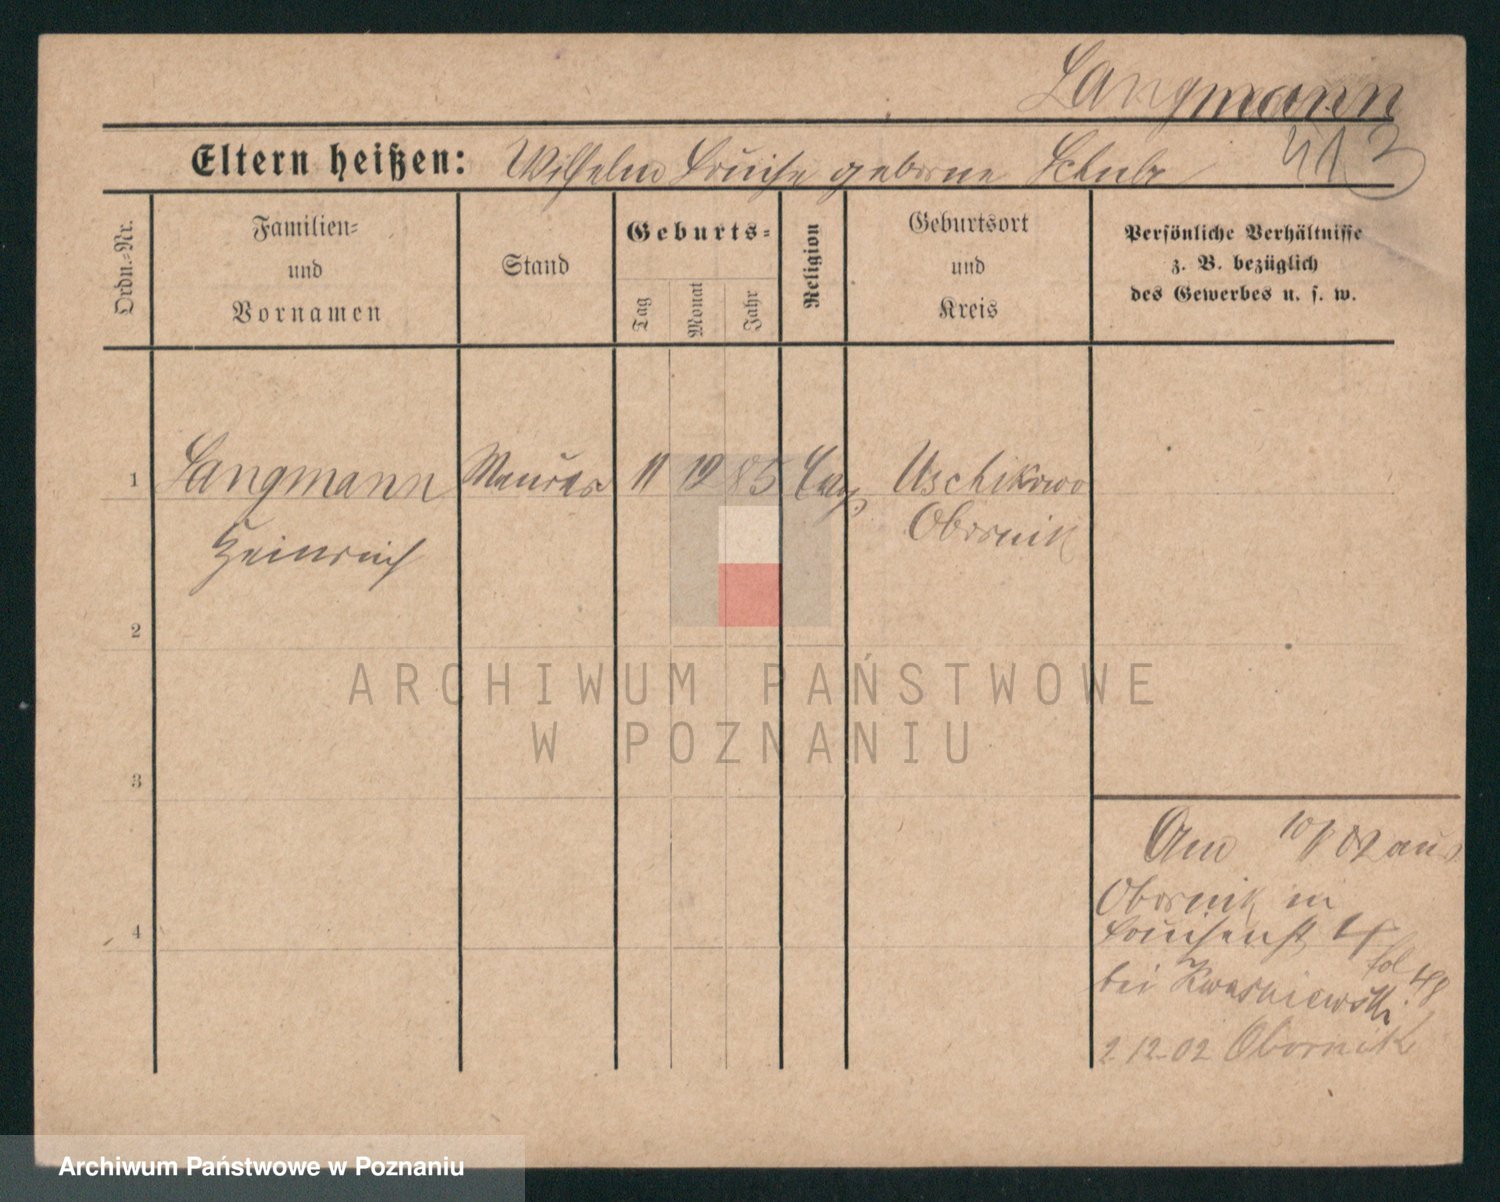 Langmann
413
Eltern heißen: Wilhelm Louise geborne Schulz
Ordn.-Nr.
Familien-
und
Vornamen
Stand
Geburts-
Tag
Monat
Jahr
Religion
Geburtsort
und
Kreis
Persönliche Verhältnisse
z. B. bezüglich
des Gewerbes u. s. w.
1 Langmann Maurer 11 10 85 Evg. Uschikowo
Heinrich Obornik
2
3
4
Am 10/ 02 aus
Obornik in
Louisenst 4
bei Kwasniewski
fol 48
2.12.02 Obornik
ARCHIWUM PAŃSTWOWE
W POZNANIU
Archiwum Państwowe w Poznaniu